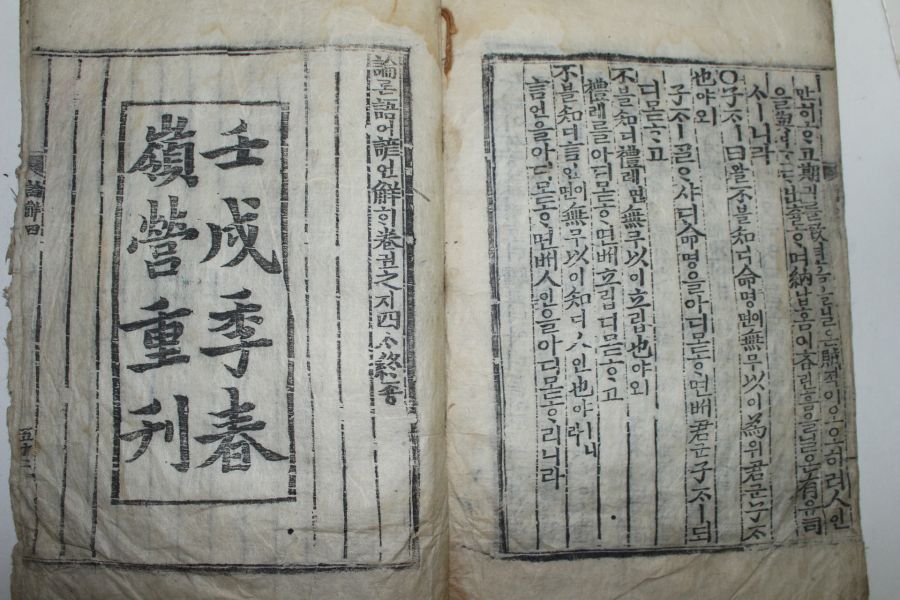 만히ᄒᆞ고期긔ᄅᆞᆯ致티ᄒᆞ욤을닐온賊적이오오히려人인
을與여호ᄃᆡ出츌ᄒᆞ며納납홈이吝린홈을닐온有유司
ᄉᆞㅣ니라
○子ᄌᆞㅣ曰왈不블知디命명이면無무以이為위君군子ᄌᆞ
也야ㅣ오
子ᄌᆞㅣᄀᆞᆯᄋᆞ샤ᄃᆡ命명을아디몯ᄒᆞ면ᄡᅥ君군子ᄌᆞㅣ되
디몯ᄒᆞ고
不블知디禮례면無무以이立립也야ㅣ오
禮례를아디몯ᄒᆞ면ᄡᅥ立립디몯ᄒᆞ고
不블知디言언이면無무以이知디人인也야ㅣ니라
言언을아디몯ᄒᆞ면ᄡᅥ人인을아디몯ᄒᆞ리니라
論론語어諺언觧ᄒᆡ卷권之지四ᄉᆞ終죵
壬戌季春
嶺營重刊
論觧四